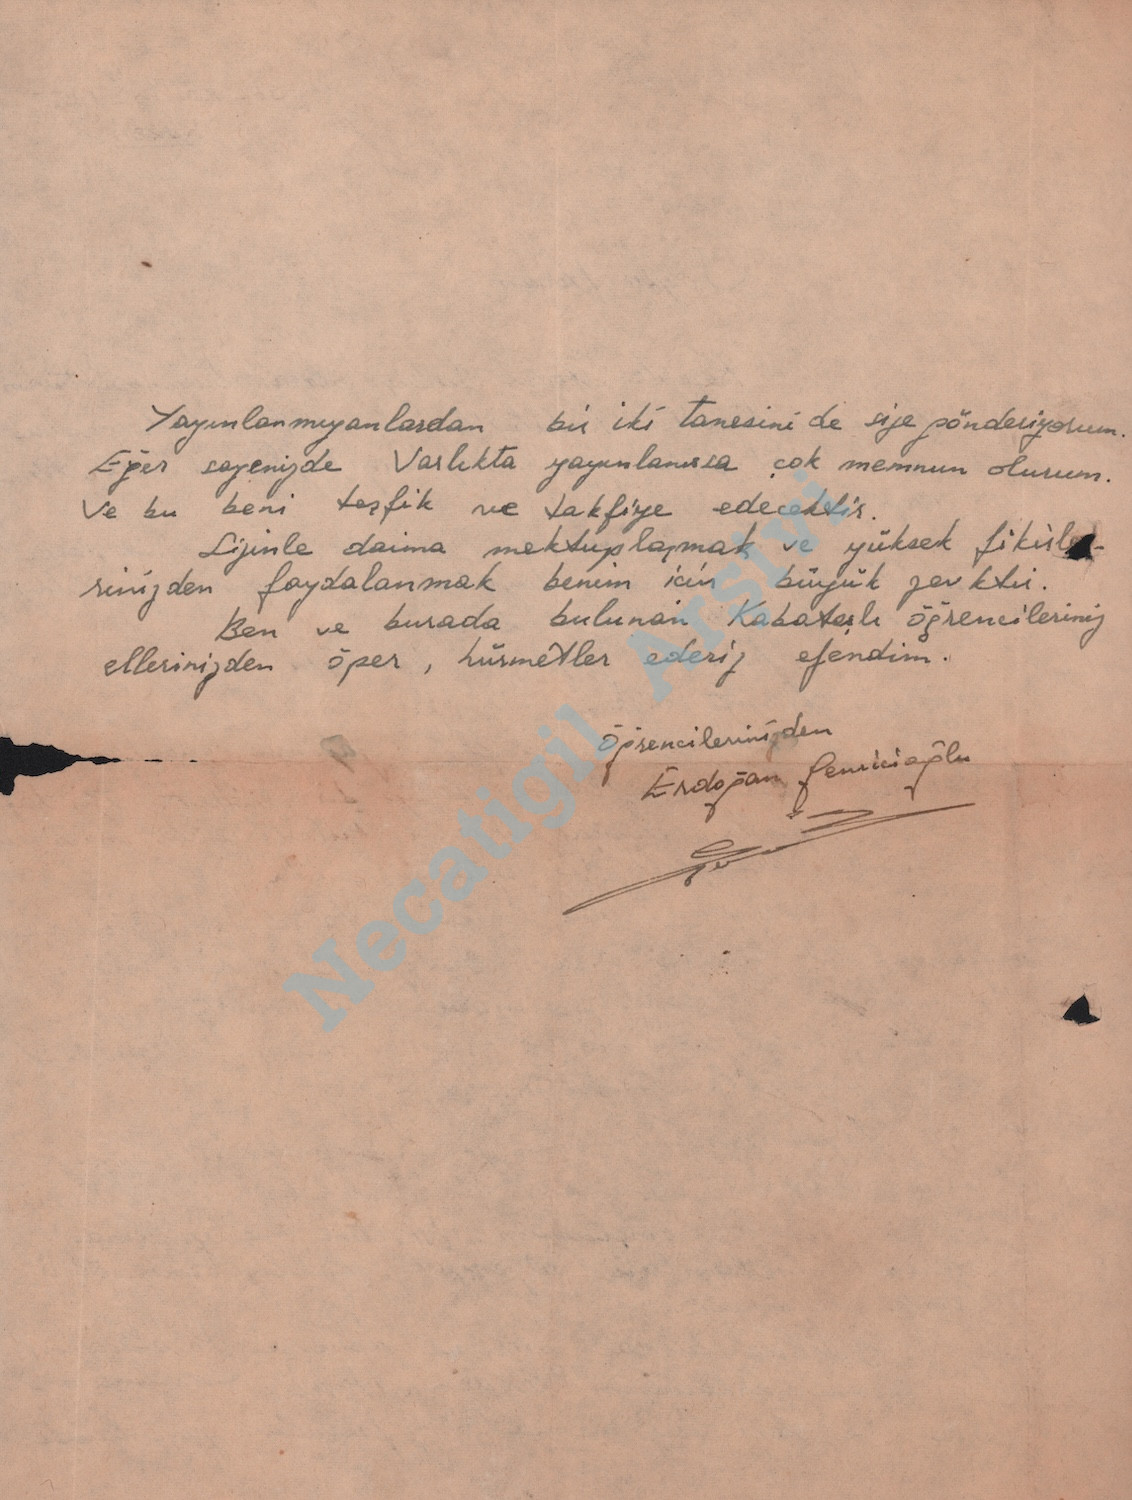 Yayınlanmıyanlardan bir iki tanesini de size gönderiyorum.
Eğer sayenizde Varlıkta yayınlanırsa çok memnun olurum.
Ve bu beni teşfik ve takfiye edecektir.
Sizinle daima mektuplaşmak ve yüksek fikirle-
rinizden faydalanmak benim için büyük zevktir.
Ben ve burada bulunan Kabataşlı öğrencileriniz
ellerinizden öper, hürmetler ederiz efendim.
Öğrencilerinizden
Erdoğan
Necatigil Arşivi